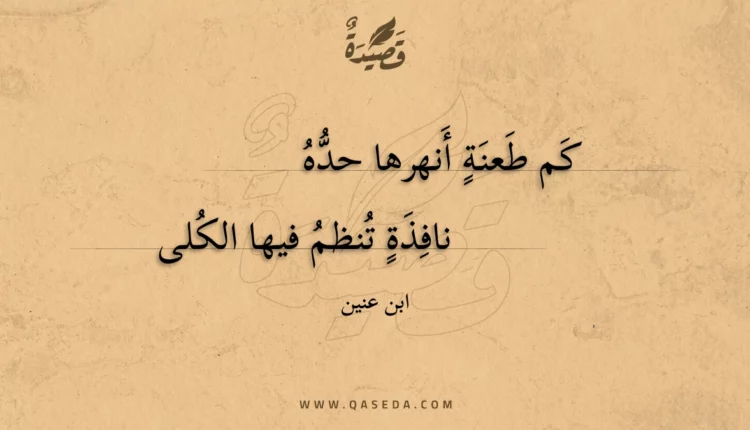 قَصِيدَةٌ
كَم طَعنَةٍ أَنهرها حدُّهُ
نافِذَةٍ تُنظمُ فيها الكُلى
ابن عنين
WWW.QASEDA.COM